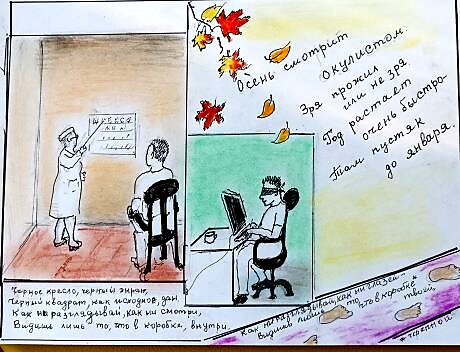 Осень смотрит
Окулистом:
Зря прожил
или не зря.
Год растает
очень быстро-
Там пустяк
до января.
Ш Н Б
Черное кресло, черный экран,
Черный квадрат, как исходное, дан.
Как ни разглядывай, как ни смотри,
Видишь лишь то, что в коробке, внутри.
Как ни разглядывай, как ни глазей-
Видишь лишь то, что в коробке*
твоей.